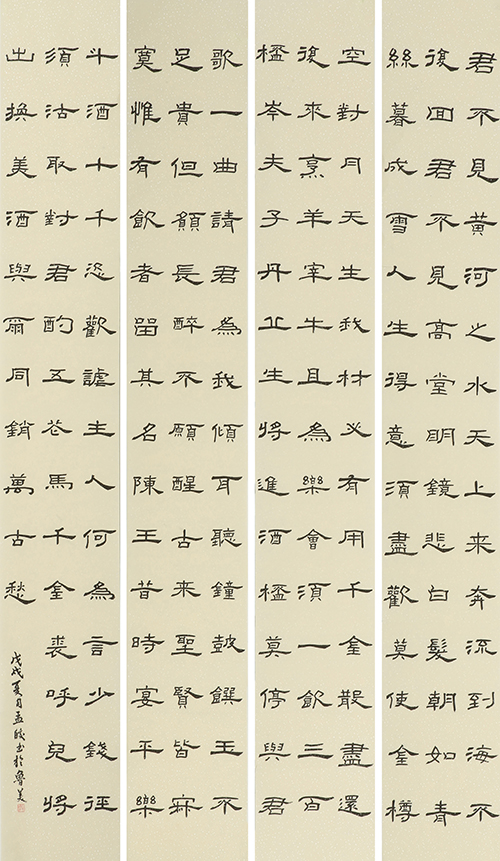 君不見黃河之水天上来奔流到海不
復回君不見高堂明鏡悲白髮朝如青
絲暮成雪人生得意須盡歡莫使金樽
空對月天生我材必有用千金散盡還
復来烹羊宰牛且為樂會須一飲三百
桮岑夫子丹丘生將進酒桮莫停與君
歌一曲請君為我傾耳聽鐘鼓饌玉不
足貴但願長醉不願醒古来聖賢皆寂
寞惟有飲者留其名陳王昔時宴平樂
斗酒十千恣歡謔主人何為言少錢徑
須沽取對君酌五花馬千金裘呼兒將
出換美酒與爾同銷萬古愁
戊戌夏月孟书於魯美